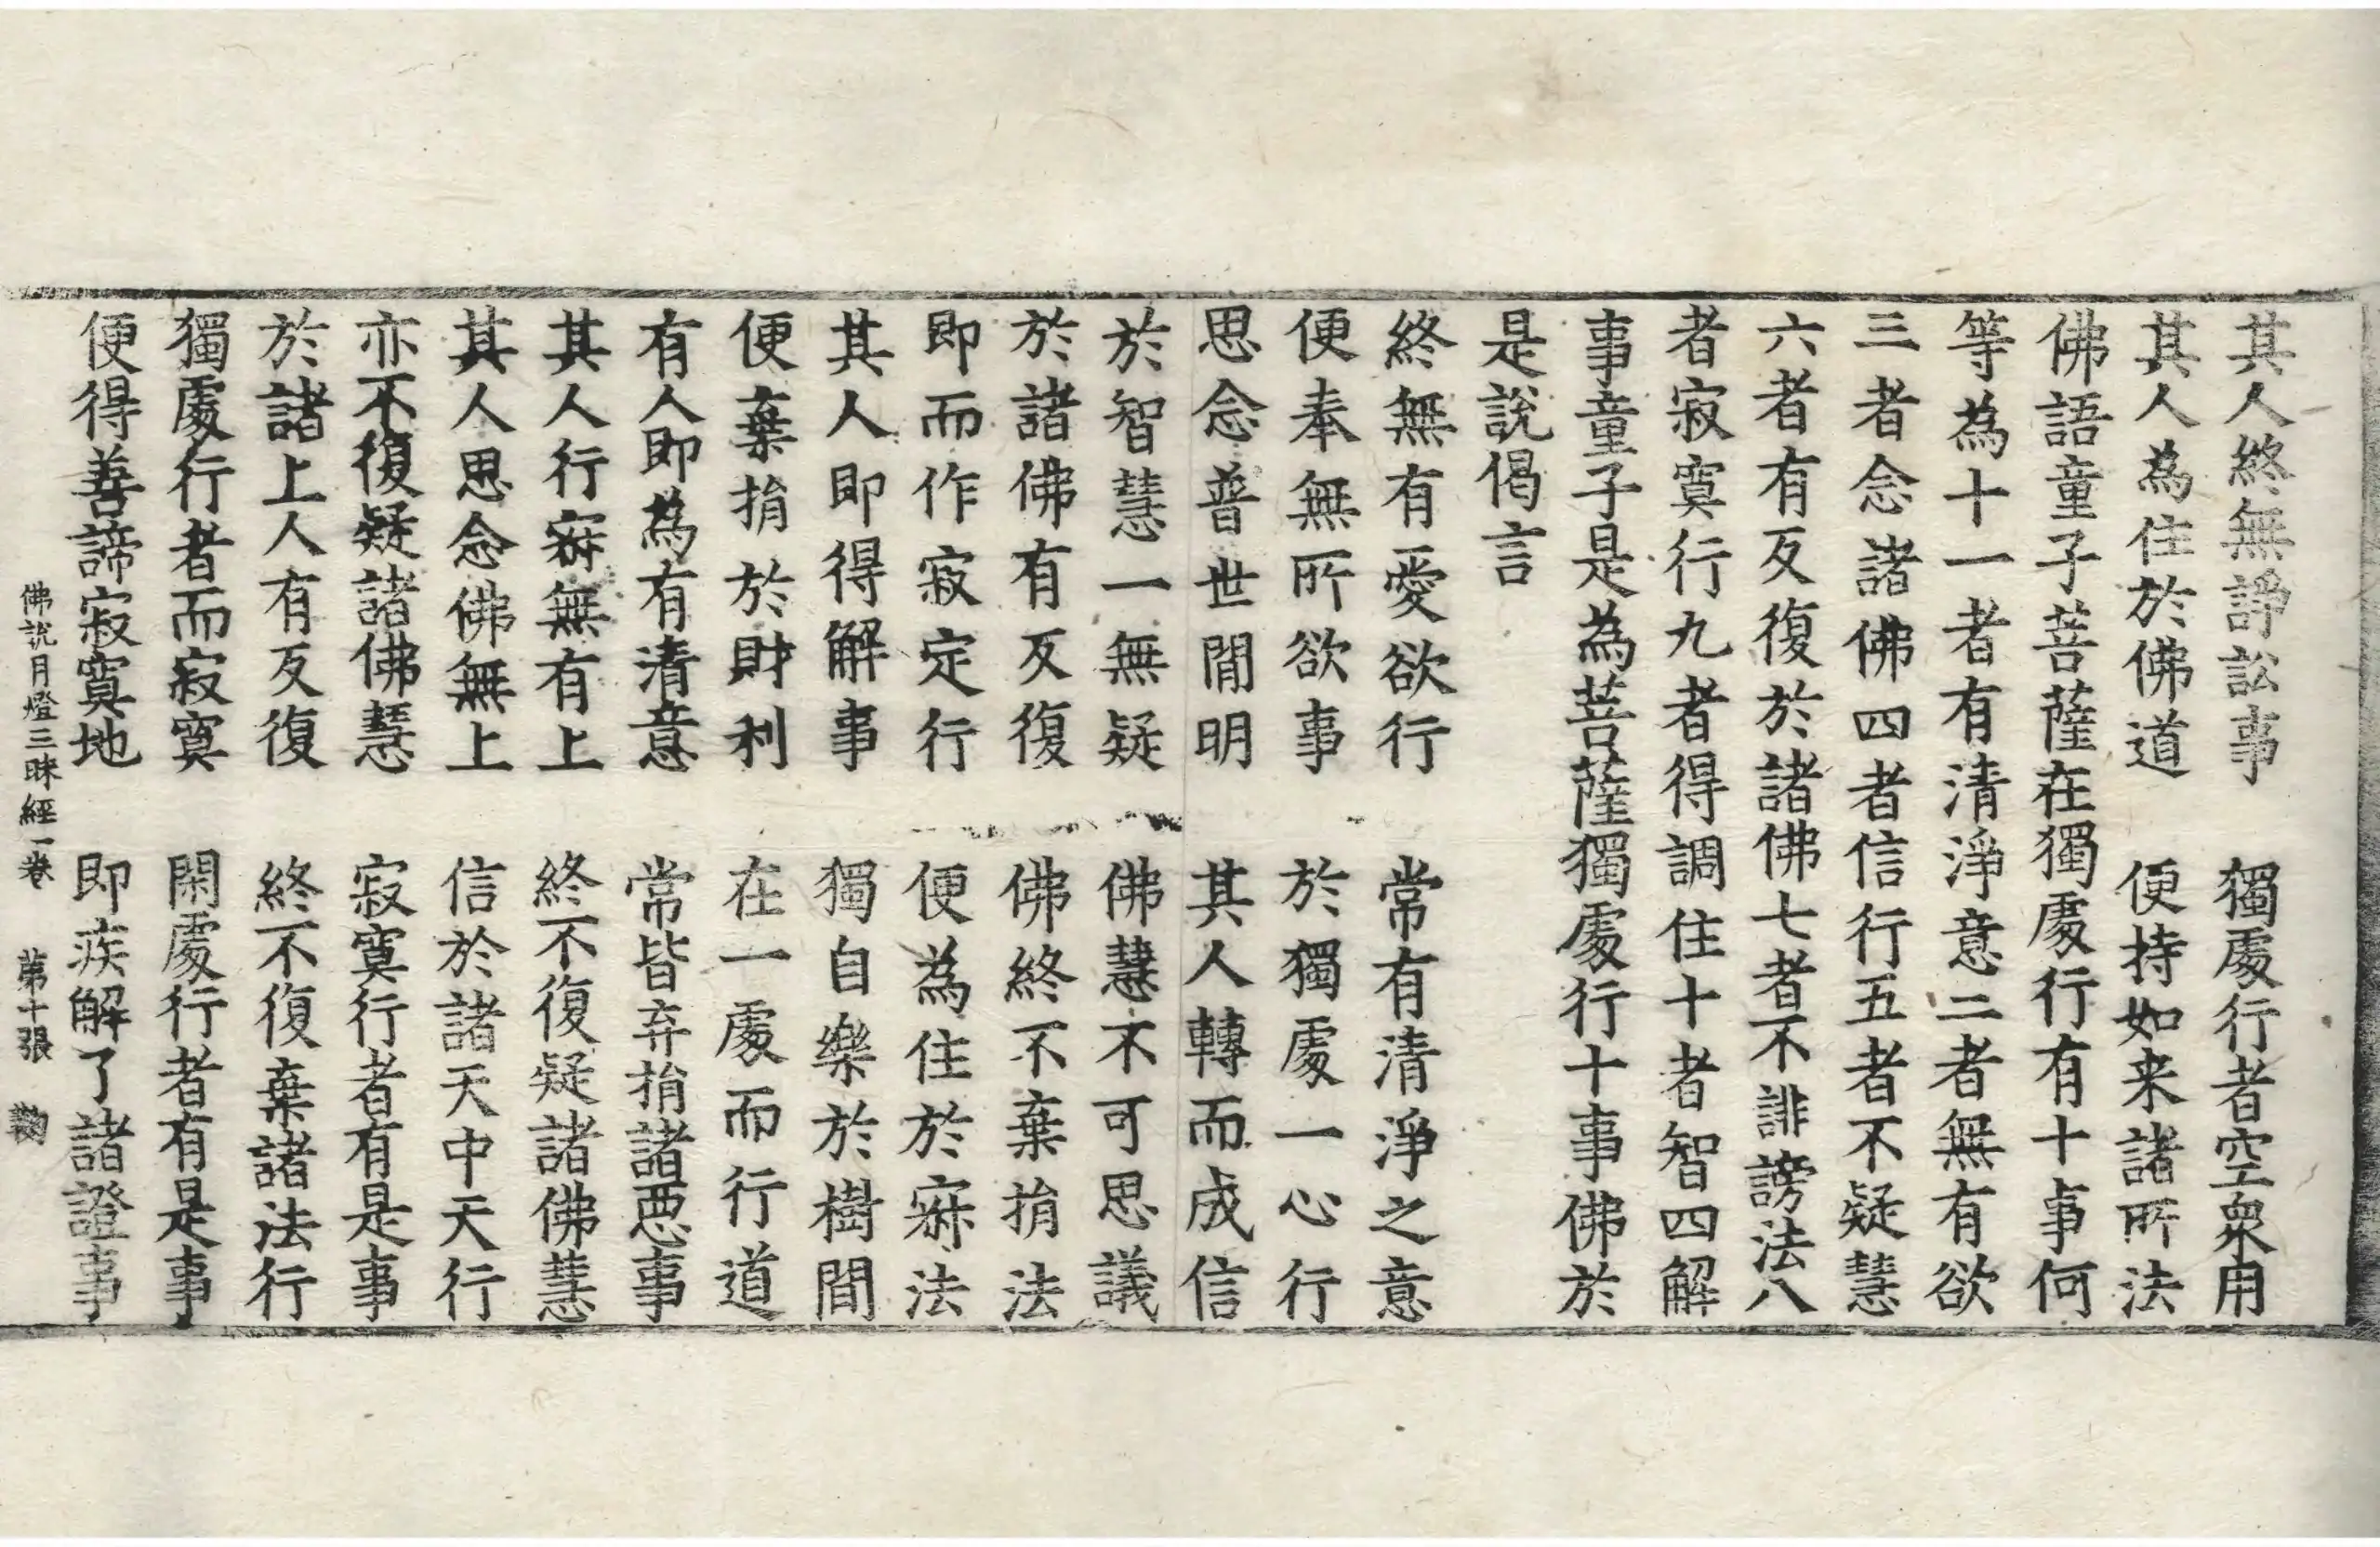 其人終無諍訟事　獨處行者空衆用
其人為住於佛道　便持如来諸所法
佛語童子菩薩在獨處行有十事何
等為十一者有清淨意二者無有欲
三者念諸佛四者信行五者不疑慧
六者有反復於諸佛七者不誹謗法八
者寂寞行九者得調住十者智四解
事童子是為菩薩獨處行十事佛於
是說偈言
終無有愛欲行　常有清淨之意
便奉無所欲事　於獨處一心行
思念普世間明　其人轉而成信
於智慧一無疑　佛慧不可思議
於諸佛有反復　佛終不棄捐法
即而作寂定行　便為住於寐法
其人即得解事　獨自樂於樹間
便棄捐於財利　在一處而行道
有人即為有清意　常皆弃捐諸惡事
其人行寐無有上　終不復疑諸佛慧
其人思念佛無上　信於諸天中天行
亦不復疑諸佛慧　寂寞行者有是事
於諸上人有反復　終不復棄諸法行
獨處行者而寂寞　閑處行者有是事
便得善諦寂寞地　即疾解了諸證事
佛說月燈三昧經一卷　第十張　鞠